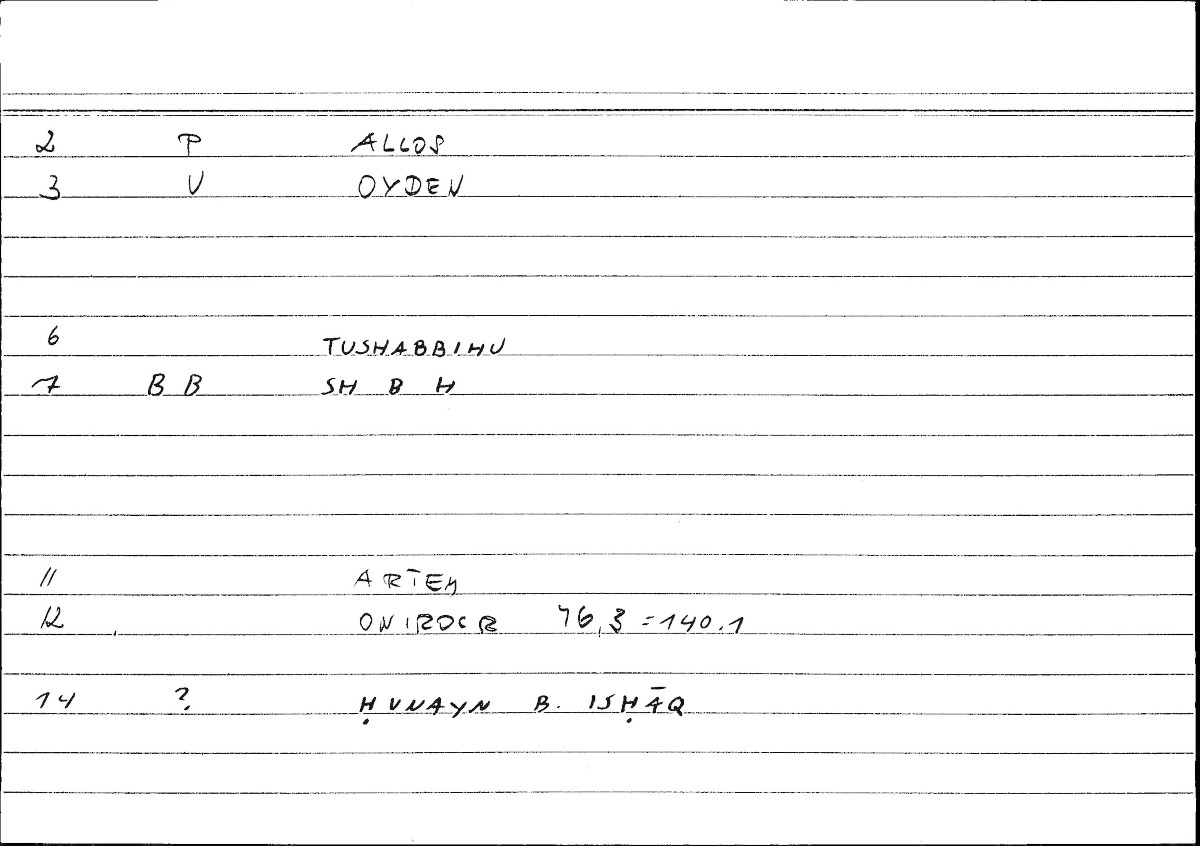 2 P ALLOS
3 V OYDEN
6 TUSHABBIHU
7 BB SH B H
11 ARTEM
12 ONIROCR 76,3 = 140.1
14 ? ḤUNAYN B. ISḤĀQ